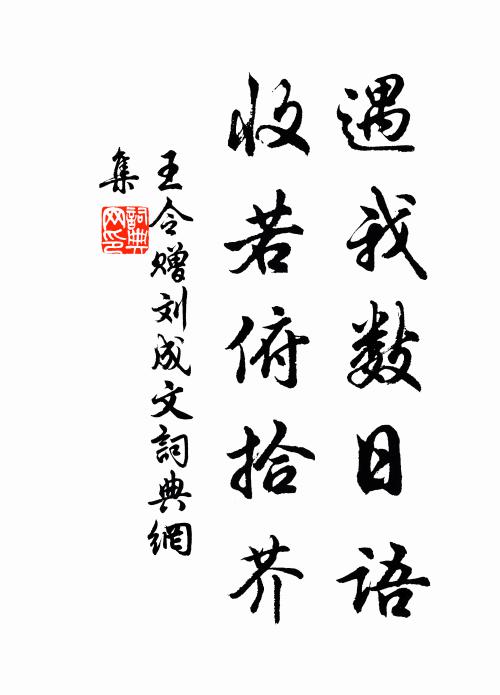 遇我数日语
收若俯拾芥
王令赠刘成文詞典網
集
詞典網印